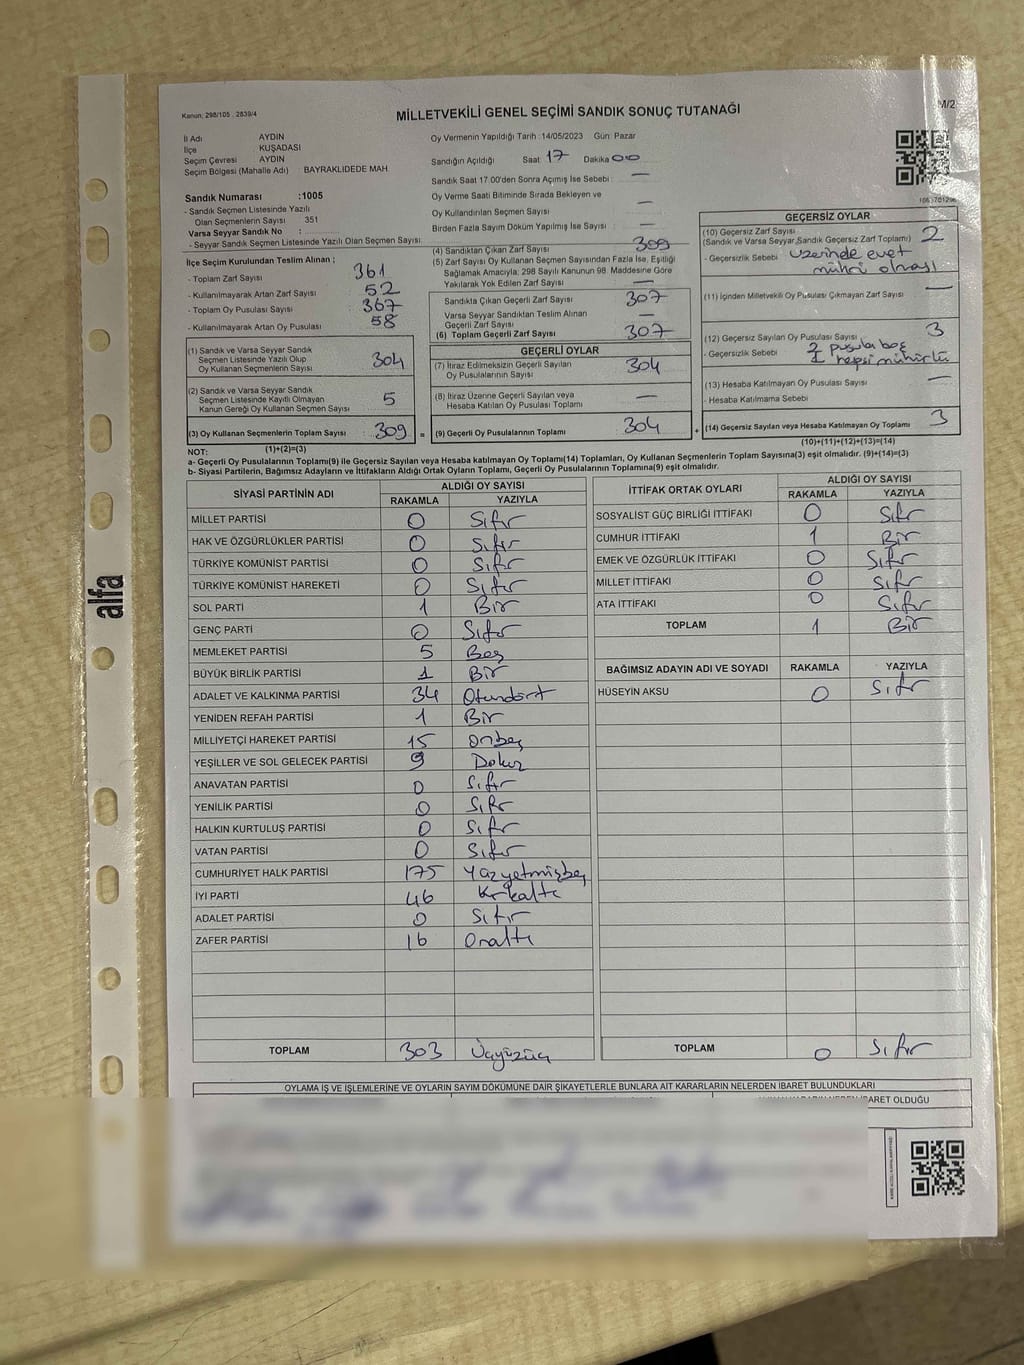 Kanun: 298/105 , 2839/4
MİLLETVEKİLİ GENEL SEÇİMİ SANDIK SONUÇ TUTANAĞI
M/2
İl Adı AYDIN
İlçe KUŞADASI
Seçim Çevresi AYDIN
Seçim Bölgesi (Mahalle Adı) : BAYRAKLIDEDE MAH.
Sandık Numarası :1005
- Sandık Seçmen Listesinde Yazılı
Olan Seçmenlerin Sayısı 351
Varsa Seyyar Sandık No :
- Seyyar Sandık Seçmen Listesinde Yazılı Olan Seçmen Sayısı:
İlçe Seçim Kurulundan Teslim Alınan ;
- Toplam Zarf Sayısı 361
- Kullanılmayarak Artan Zarf Sayısı 52
- Toplam Oy Pusulası 367
- Kullanılmayarak Artan Oy Pusulası 58
(1) Sandık ve Varsa Seyyar Sandık
Seçmen Listesinde Yazılı Olup
Oy Kullanan Seçmenlerin Sayısı 304
(2) Sandık ve Varsa Seyyar Sandık
Seçmen Listesinde Kayıtlı Olmayan
Kanun Gereği Oy Kullanan Seçmen Sayısı 5
(3) Oy Kullanan Seçmenlerin Toplam Sayısı 309 =
(1)+(2)=(3)
Oy Vermenin Yapıldığı Tarih :14/05/2023 Gün: Pazar
Sandığın Açıldığı Saat 17 Dakika 00
Sandık Saat 17:00'den Sonra Açılmış İse Sebebi : —
Oy Verme Saati Bitiminde Sırada Bekleyen ve
Oy Kullandırılan Seçmen Sayısı —
Birden Fazla Sayım Döküm Yapılmış İse Sayısı : —
(4) Sandıktan Çıkan Zarf Sayısı 309
(5) Zarf Sayısı Oy Kullanan Seçmen Sayısından Fazla İse, Eşitliği
Sağlamak Amacıyla; 298 Sayılı Kanunun 98. Maddesine Göre
Yakılarak Yok Edilen Zarf Sayısı —
Sandıkta Çıkan Geçerli Zarf Sayısı 307
Varsa Seyyar Sandıktan Teslim Alınan
Geçerli Zarf Sayısı —
(6) Toplam Geçerli Zarf Sayısı 307
GEÇERLİ OYLAR
(7) İtiraz Edilmeksizin Geçerli Sayılan
Oy Pusulalarının Sayısı 304
(8) İtiraz Üzerine Geçerli Sayılan veya
Hesaba Katılan Oy Pusulası Toplamı —
(9) Geçerli Oy Pusulalarının Toplamı 304 +
GEÇERSİZ OYLAR
(10) Geçersiz Zarf Sayısı
(Sandık ve Varsa Seyyar Sandık Geçersiz Zarf Toplamı) 2
- Geçersizlik Sebebi üzerinde evet
mührü olması
(11) İçinden Milletvekili Oy Pusulası Çıkmayan Zarf Sayısı —
(12) Geçersiz Sayılan Oy Pusulası Sayısı 3
- Geçersizlik Sebebi 2 pusula boş
1 hepsi mühürlü
(13) Hesaba Katılmayan Oy Pusulası Sayısı —
- Hesaba Katılmama Sebebi
(14) Geçersiz Sayılan veya Hesaba Katılmayan Oy Toplamı 3
(10)+(11)+(12)+(13)=(14)
NOT:
a- Geçerli Oy Pusulalarının Toplamı(9) ile Geçersiz Sayılan veya Hesaba katılmayan Oy Toplamı(14) Toplamları, Oy Kullanan Seçmenlerin Toplam Sayısına(3) eşit olmalıdır. (9)+(14)=(3)
b- Siyasi Partilerin, Bağımsız Adayların ve İttifakların Aldığı Ortak Oyların Toplamı, Geçerli Oy Pusulalarının Toplamına(9) eşit olmalıdır.
SİYASİ PARTİNİN ADI ALDIĞI OY SAYISI
RAKAMLA YAZIYLA
MİLLET PARTİSİ 0 Sıfır
HAK VE ÖZGÜRLÜKLER PARTİSİ 0 Sıfır
TÜRKİYE KOMÜNİST PARTİSİ 0 Sıfır
TÜRKİYE KOMÜNİST HAREKETİ 0 Sıfır
SOL PARTİ 1 Bir
GENÇ PARTİ 0 Sıfır
MEMLEKET PARTİSİ 5 Beş
BÜYÜK BİRLİK PARTİSİ 1 Bir
ADALET VE KALKINMA PARTİSİ 34 Otuzdört
YENİDEN REFAH PARTİSİ 1 Bir
MİLLİYETÇİ HAREKET PARTİSİ 15 onbeş
YEŞİLLER VE SOL GELECEK PARTİSİ 9 Dokuz
ANAVATAN PARTİSİ 0 Sıfır
YENİLİK PARTİSİ 0 Sıfır
HALKIN KURTULUŞ PARTİSİ 0 Sıfır
VATAN PARTİSİ 0 Sıfır
CUMHURİYET HALK PARTİSİ 175 Yüzyetmişbeş
İYİ PARTİ 46 Kırkaltı
ADALET PARTİSİ 0 Sıfır
ZAFER PARTİSİ 16 Onaltı
TOPLAM 303 Üçyüzüç
İTTİFAK ORTAK OYLARI ALDIĞI OY SAYISI
RAKAMLA YAZIYLA
SOSYALİST GÜÇ BİRLİĞİ İTTİFAKI 0 Sıfır
CUMHUR İTTİFAKI 1 Bir
EMEK VE ÖZGÜRLÜK İTTİFAKI 0 Sıfır
MİLLET İTTİFAKI 0 Sıfır
ATA İTTİFAKI 0 Sıfır
TOPLAM 1 Bir
BAĞIMSIZ ADAYIN ADI VE SOYADI RAKAMLA YAZIYLA
HÜSEYİN AKSU 0 Sıfır
TOPLAM 0 Sıfır
OYLAMA İŞ VE İŞLEMLERİNE VE OYLARIN SAYIM DÖKÜMÜNE DAİR ŞİKAYETLERLE BUNLARA AİT KARARLARIN NELERDEN İBARET BULUNDUKLARI
İBARET OLDUĞU
alfa